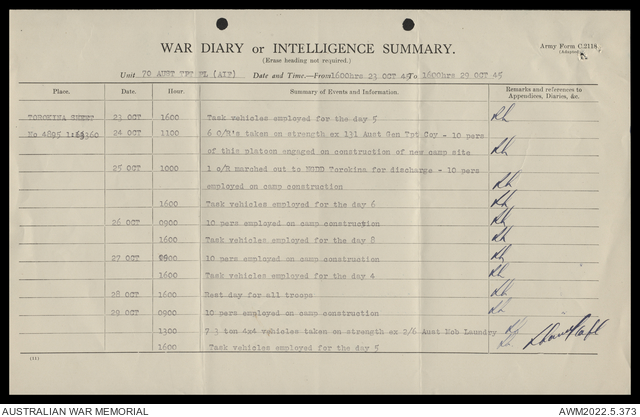 WAR DIARY or INTELLIGENCE SUMMARY.
(Erase heading not required.)
Army Form C.2118
(Adapted)
Unit 79 AUST TPT PL (AIF) Date and Time.—From 1600hrs 23 OCT 45 To 1600hrs 29 OCT 45
Place. Date. Hour. Summary of Events and Information. Remarks and references to Appendices, Diaries, &c.
TOROKINA SHEET 23 OCT 1600 Task vehicles employed for the day 5
No 4895 24 OCT 1100 6 O/R's taken on strength ex 131 Aust Gen Tpt Coy - 10 pers
of this platoon engaged on construction of new camp site
25 OCT 1000 1 o/R marched out to Torokina for discharge - 10 pers
employed on camp construction
1600 Task vehicles employed for the day 6
26 OCT 0900 10 pers employed on camp construction
1600 Task vehicles employed for the day 8
27 OCT 0900 10 pers employed on camp construction
1600 Task vehicles employed for the day 4
28 OCT 1600 Rest day for all troops
29 OCT 0900 10 pers employed on camp construction
1300 7 3 ton 4x4 vehicles taken on strength ex 2/6 Aust Mob Laundry
1600 Task vehicles employed for the day 5
AUSTRALIAN WAR MEMORIAL AWM2022.5.373